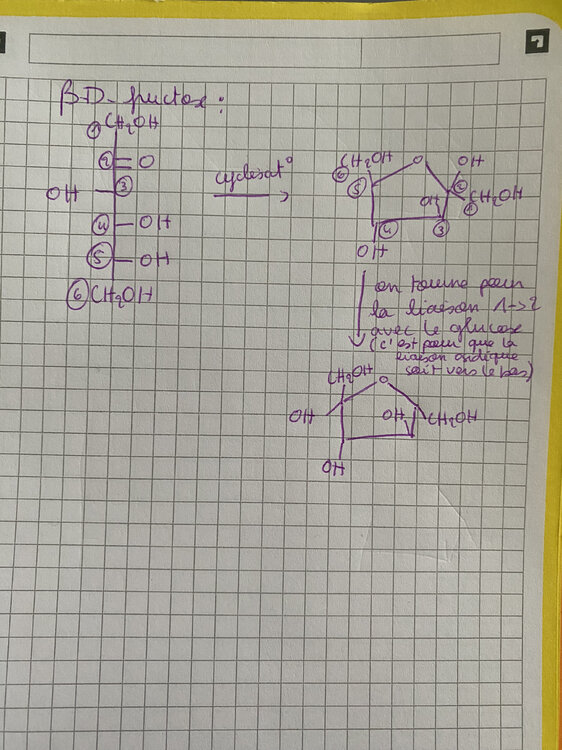 βD-fructose :
① CH₂OH
② = O
OH ③
④ - OH
⑤ - OH
⑥ CH₂OH
cyclisat°
CH₂OH O OH
⑥ ⑤ OH ② ① CH₂OH
④ ③
OH
on tourne pour
la liaison 1->2
avec le glucose
(c'est pour que la
liaison osidique
soit vers le bas)
CH₂OH O
OH OH CH₂OH
OH